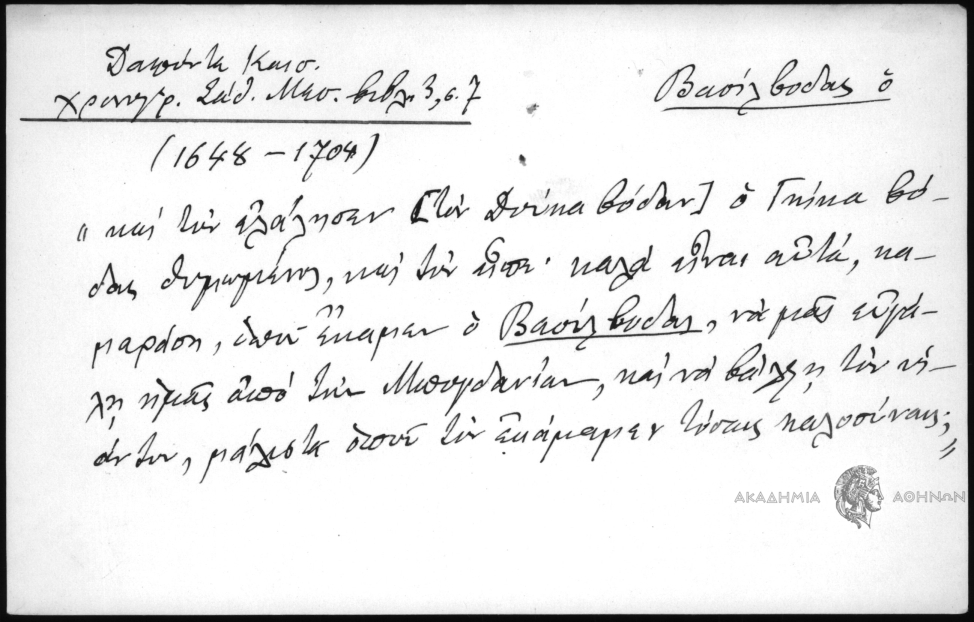 Δαπόντε Καισ.
χρονογρ. Σάθ. Μεσ. βιβλ. 3, σ. 7
Βασίλβοδας ὁ
(1648 – 1704)
"καὶ τὸν ἐλάλησεν [τὸν Δούκα βόδαν] ὁ Γκίκα βό-
δας θυμωμένος, καὶ τὸν εἶπε· καλὰ εἶναι αὐτά, κα-
μαράση, ὁποῦ ἔκαμεν ὁ Βασίλβοδας, νὰ μᾶς εὐγά-
λῃ ἡμᾶς ἀπὸ τὴν Μπογδανίαν, καὶ νὰ βάλῃ τὸν υἱ-
όν του, μάλιστα ὁποῦ τὸν ἐκάμαμεν τόσαις καλοσύναις;"
ΑΚΑΔΗΜΙΑ ΑΘΗΝΩΝ